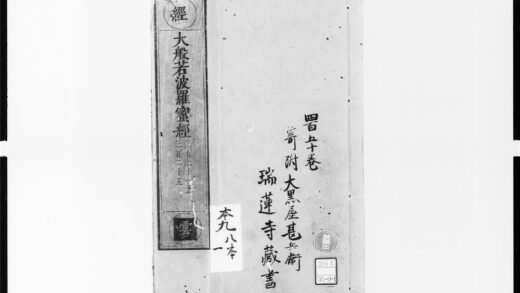 經
大般若波羅蜜經
雲
四百五十巻
寄附大黒屋甚兵衛
瑞蓮寺藏書
本九八本
一